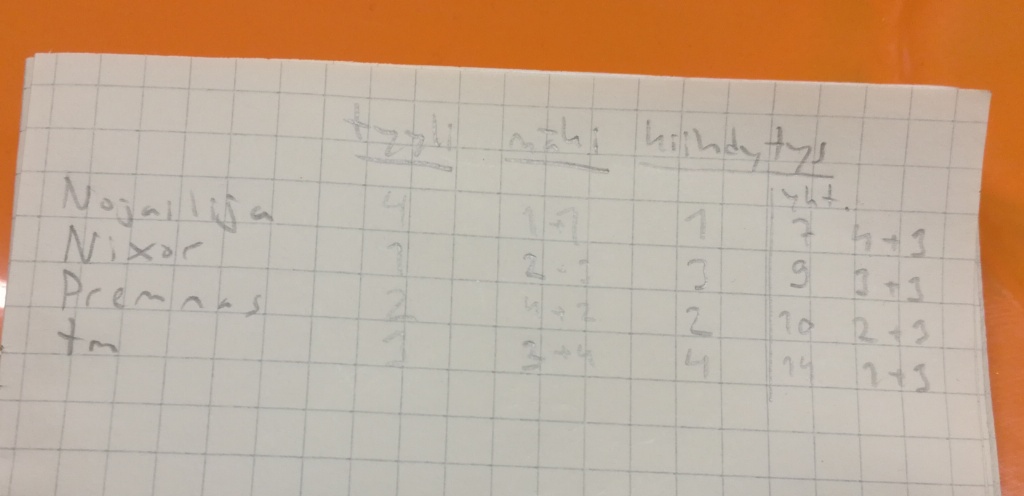 tyyli mäki kiihdytys
yht.
Nojailija 4 1+1 1 7 4+3
Nixor 3 9 3+3
Premnas 2 2 10 2+3
tm 4 14 1+3